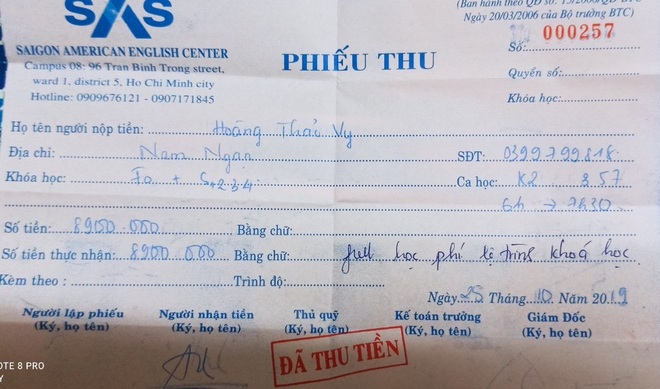 SAS
(Ban hành theo QĐ số: 15/2006/QĐ-BTC
Ngày 20/03/2006 của Bộ trưởng BTC)
SAIGON AMERICAN ENGLISH CENTER
Campus 08: 96 Tran Binh Trong street,
ward 1, district 5, Ho Chi Minh city
Hotline: 0909676121 - 0907171845
PHIẾU THU
Số: 000257
Quyển số:
Khóa học:
Họ tên người nộp tiền: Hoàng Thảo Vy
Địa chỉ: Nam Ngạn SĐT: 0399799818
Khóa học: Fo + S1+2.3.4 Ca học: K2 357
6h → 7h30
Số tiền: 8900.000 Bằng chữ:
Số tiền thực nhận: 8900.000 Bằng chữ: full học phí lộ trình khoá học
Kèm theo: Trình độ:
Ngày 25 Tháng 10 Năm 2019
Người lập phiếu Người nhận tiền Thủ quỹ Kế toán trưởng Giám Đốc
(Ký, họ tên) (Ký, họ tên) (Ký, họ tên) (Ký, họ tên) (Ký, họ tên)
ĐÃ THU TIỀN
OTE 8 PRO